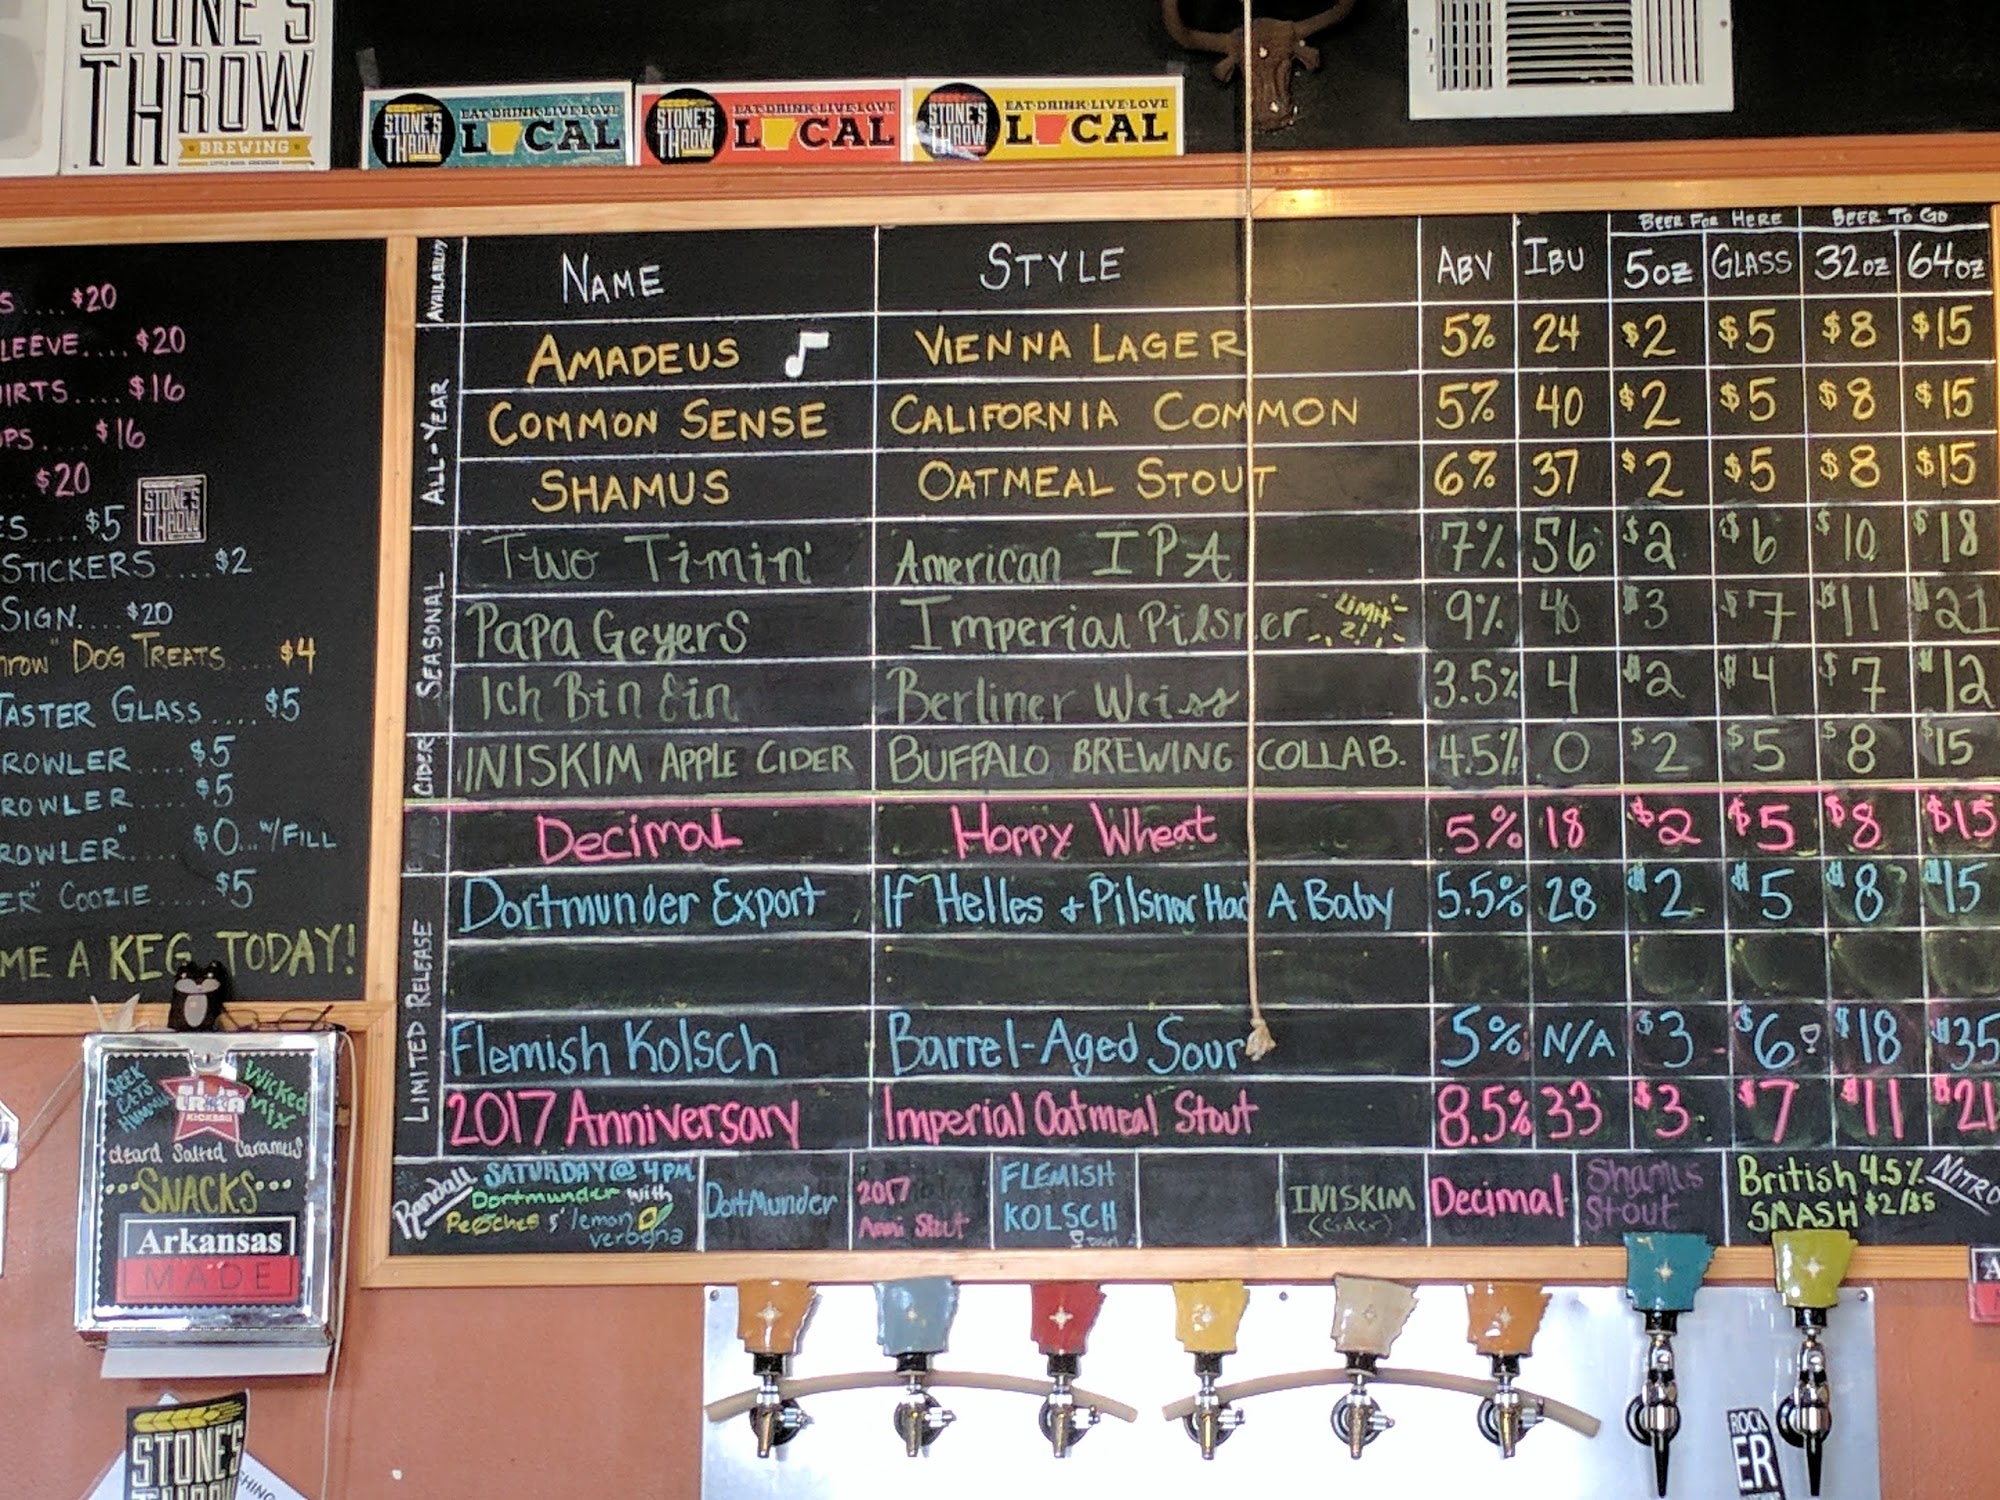 STONE'S
THROW
BREWING
STONE'S THROW EAT·DRINK·LIVE·LOVE LOCAL
STONE'S THROW EAT·DRINK·LIVE·LOVE LOCAL
STONE'S THROW EAT·DRINK·LIVE·LOVE LOCAL
S .... $20
LEEVE.... $20
IRTS.... $16
PS.... $16
$20
ES.... $5
STONE'S THROW
STICKERS .... $2
SIGN.... $20
hrow" DOG TREATS .... $4
TASTER GLASS .... $5
ROWLER .... $5
ROWLER .... $5
ROWLER" .... $0... w/FILL
ER" COOZIE .... $5
ME A KEG TODAY!
BEER FOR HERE BEER TO GO
AVAILABILITY NAME STYLE ABV IBU 5OZ GLASS 32OZ 64OZ
ALL-YEAR
AMADEUS VIENNA LAGER 5% 24 $2 $5 $8 $15
COMMON SENSE CALIFORNIA COMMON 5% 40 $2 $5 $8 $15
SHAMUS OATMEAL STOUT 6% 37 $2 $5 $8 $15
SEASONAL
Two Timin' American IPA 7% 56 $2 $6 $10 $18
Papa Geyers Imperial Pilsner LIMIT 2! 9% 40 $3 $7 $11 $21
Ich Bin Ein Berliner Weiss 3.5% 4 $2 $4 $7 $12
CIDER
INISKIM APPLE CIDER BUFFALO BREWING COLLAB. 4.5% 0 $2 $5 $8 $15
LIMITED RELEASE
Decimal Hoppy Wheat 5% 18 $2 $5 $8 $15
Dortmunder Export If Helles + Pilsner Had A Baby 5.5% 28 $2 $5 $8 $15
Flemish Kolsch Barrel-Aged Sour 5% N/A $3 $6 $18 $35
2017 Anniversary Imperial Oatmeal Stout 8.5% 33 $3 $7 $11 $21
Randall SATURDAY @ 4PM
Dortmunder with
Peaches & lemon
verbena
Dortmunder
2017
Anni Stout
FLEMISH
KOLSCH
INISKIM
(cider)
Decimal
Shamus
Stout
British 4.5%
SMASH $2/$5
NITRO
GEEK EATS
Wicked
mix
Salted Caramels
SNACKS
Arkansas
MADE
STONE'S
THROW
ROCK
ER